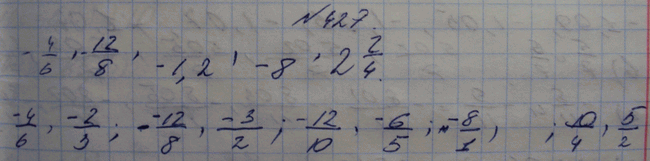 №427.
-4/6, -12/8, -1,2, -8, 2 2/4.
-4/6, -2/3; -12/8, -3/2; -12/10, -6/5; -8/1, ; 10/4, 5/2